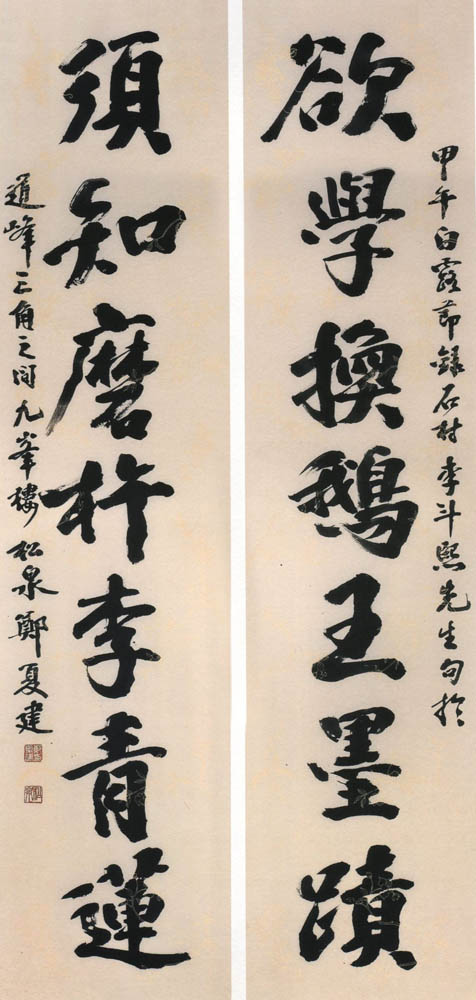 甲午白露節錄石村李斗熙先生句於
欲學換鵝王墨蹟
須知磨杵李青蓮
道峰三角之间九峯樓松泉鄭夏建